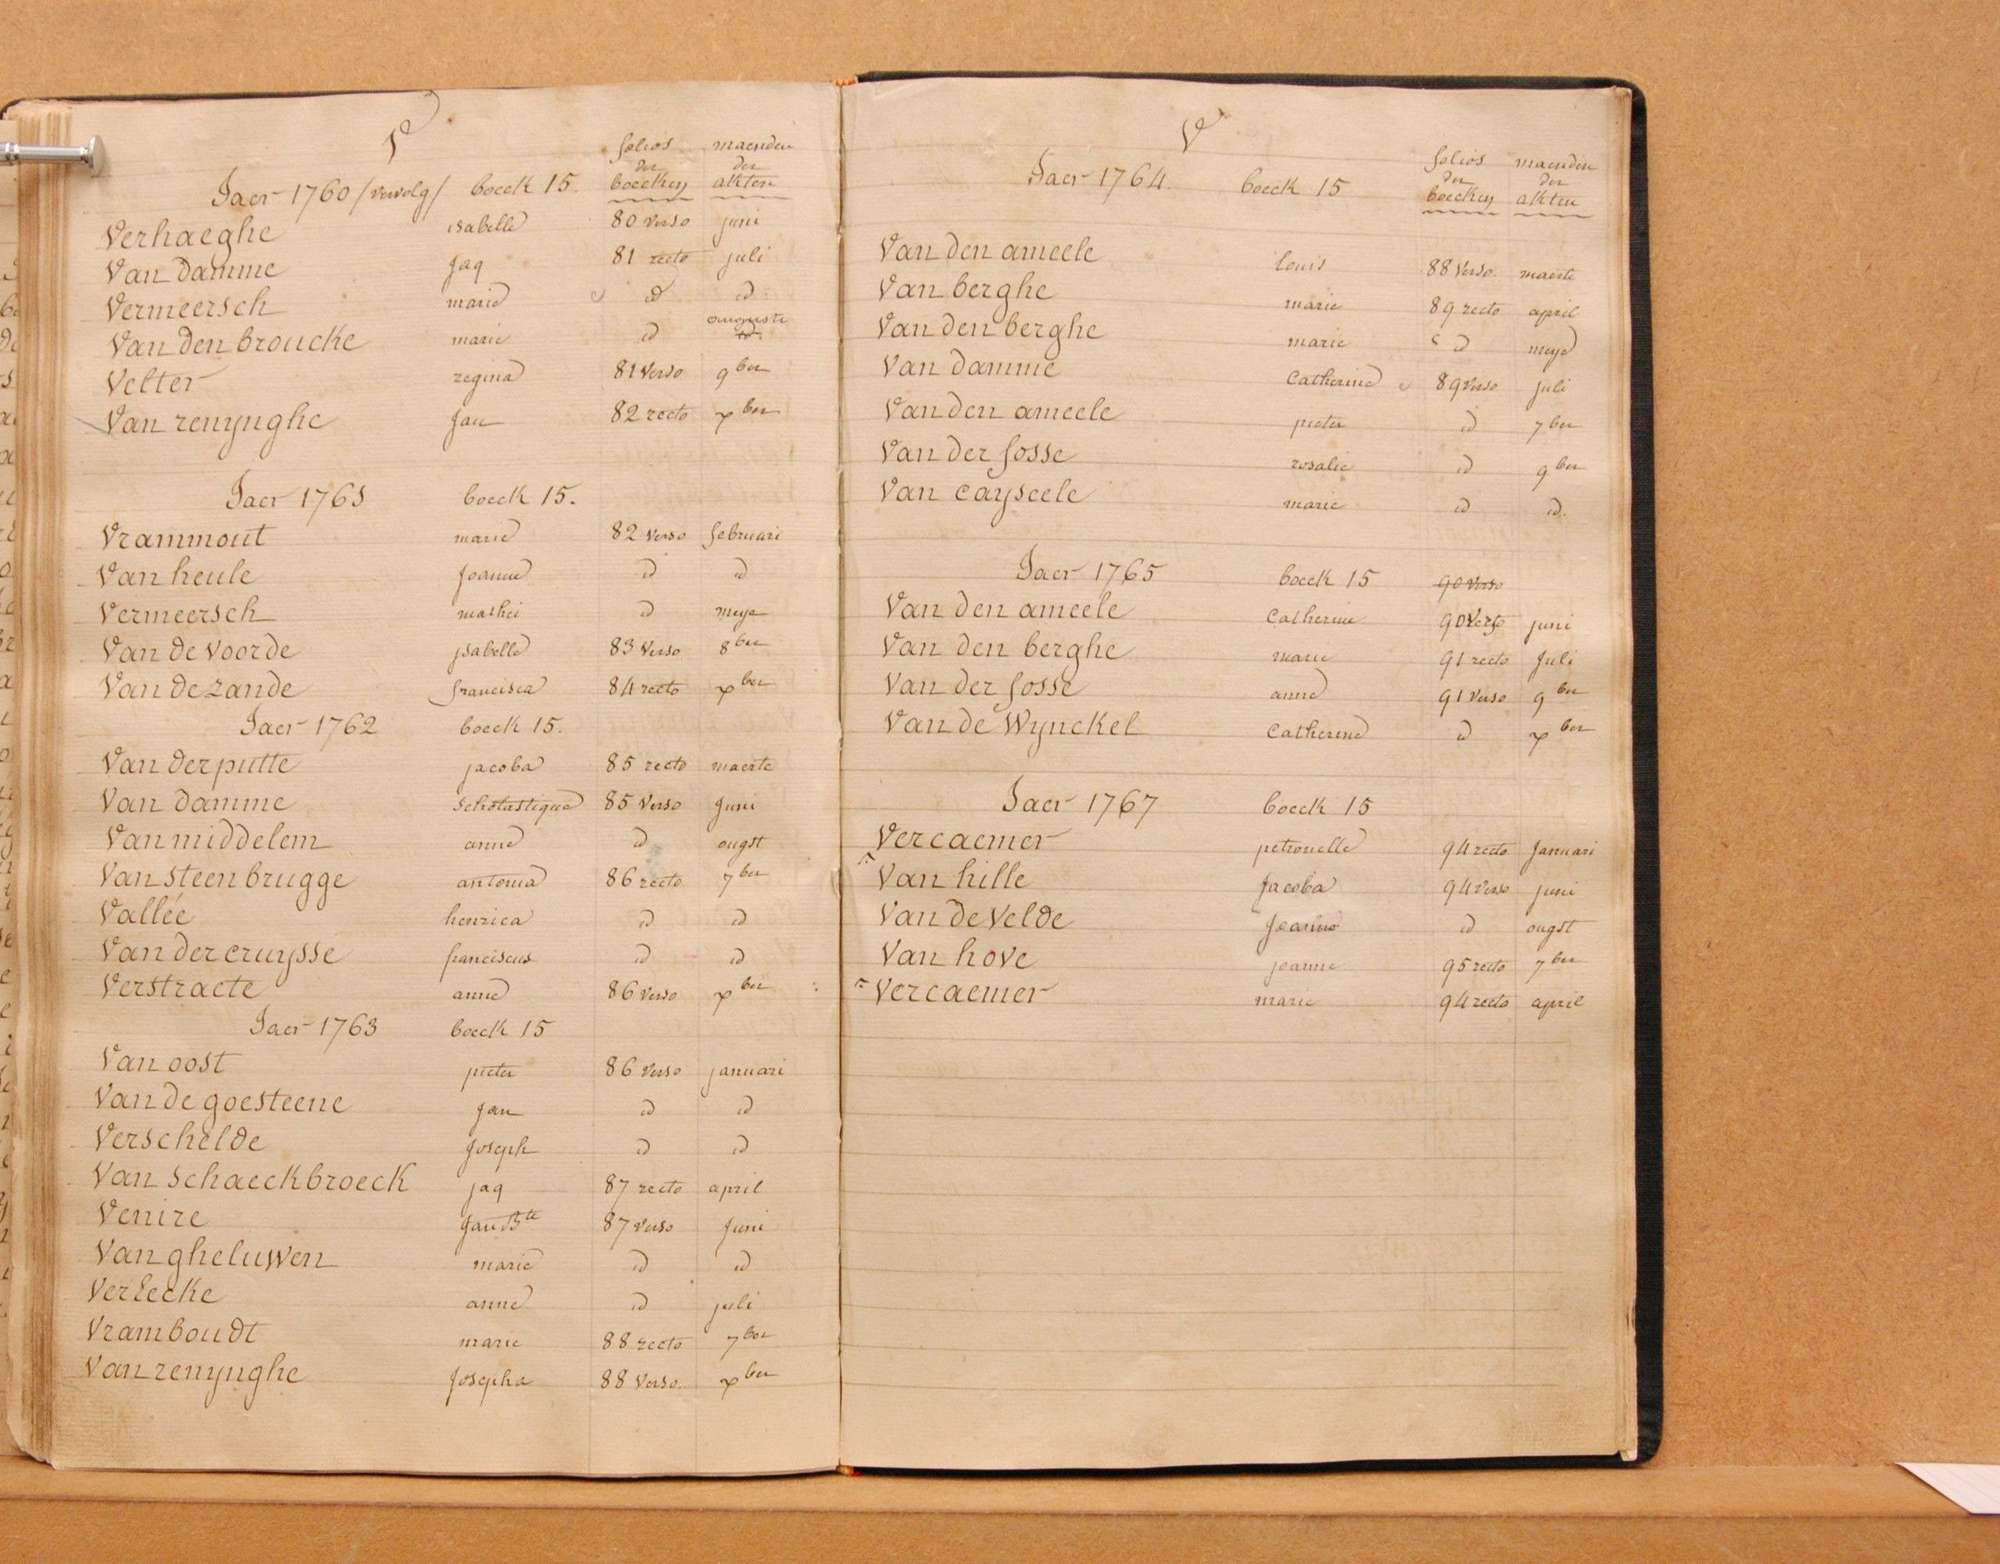 V
folios maenden
der der
Jaer 1760 /vervolg/ boeck 15. boecken akten
Verhaeghe isabelle 80 verso juni
Van Damme Jaq 81 recto juli
Vermeersch marie id id
Van Den broucke marie id ouguste id
Velter regina 81 verso 9ber
Van renynghe Jan 82 recto xber
Jaer 1761 boeck 15.
Vrammout marie 82 verso februari
Van heule Joanne id id
Vermeersch mathei id meye
Van de voorde ysabelle 83 verso 8ber
Van de zande francisca 84 recto xber
Jaer 1762 boeck 15.
Van der putte jacoba 85 recto maerte
Van Damme scholastique 85 verso Juni
Van middelem anne id ougst
Van steenbrugge antonia 86 recto 7ber
Vallée henrica id id
Van der cruysse franciscus id id
Verstraete anne 86 verso xber
Jaer 1763 boeck 15
Van oost pieter 86 verso januari
Van de goesteene Jan id id
Verschelde Joseph id id
Van schaeckbroeck jaq 87 recto april
Venire Jan Bte 87 verso Juni
Van gheluwen marie id id
Verlecke anne id juli
Vramboudt marie 88 recto 7ber
Van renynghe Josepha 88 verso xber
V
folios maenden
der der
Jaer 1764. boeck 15 boecken akten
Van den ameele louis 88 verso. maerte
Van berghe marie 89 recto april
Van den berghe marie id meye
Van Damme Catherine 89 verso juli
Van den ameele pieter id 7ber
Van der fosse rosalie id 9ber
Van cayseele marie id id.
Jaer 1765 boeck 15 90 verso
Van den ameele Catherine 90 verso juni
Van den berghe marie 91 recto Juli
Van der fosse anne 91 verso 9ber
Van de Wynckel Catherine id xber
Jaer 1767 boeck 15
Vercaemer petronelle 94 recto Januari
Van hille Jacoba 94 verso juni
Van de velde Joanne id ougst
Van hove joanne 95 recto 7ber
Vercaemer marie 94 recto april